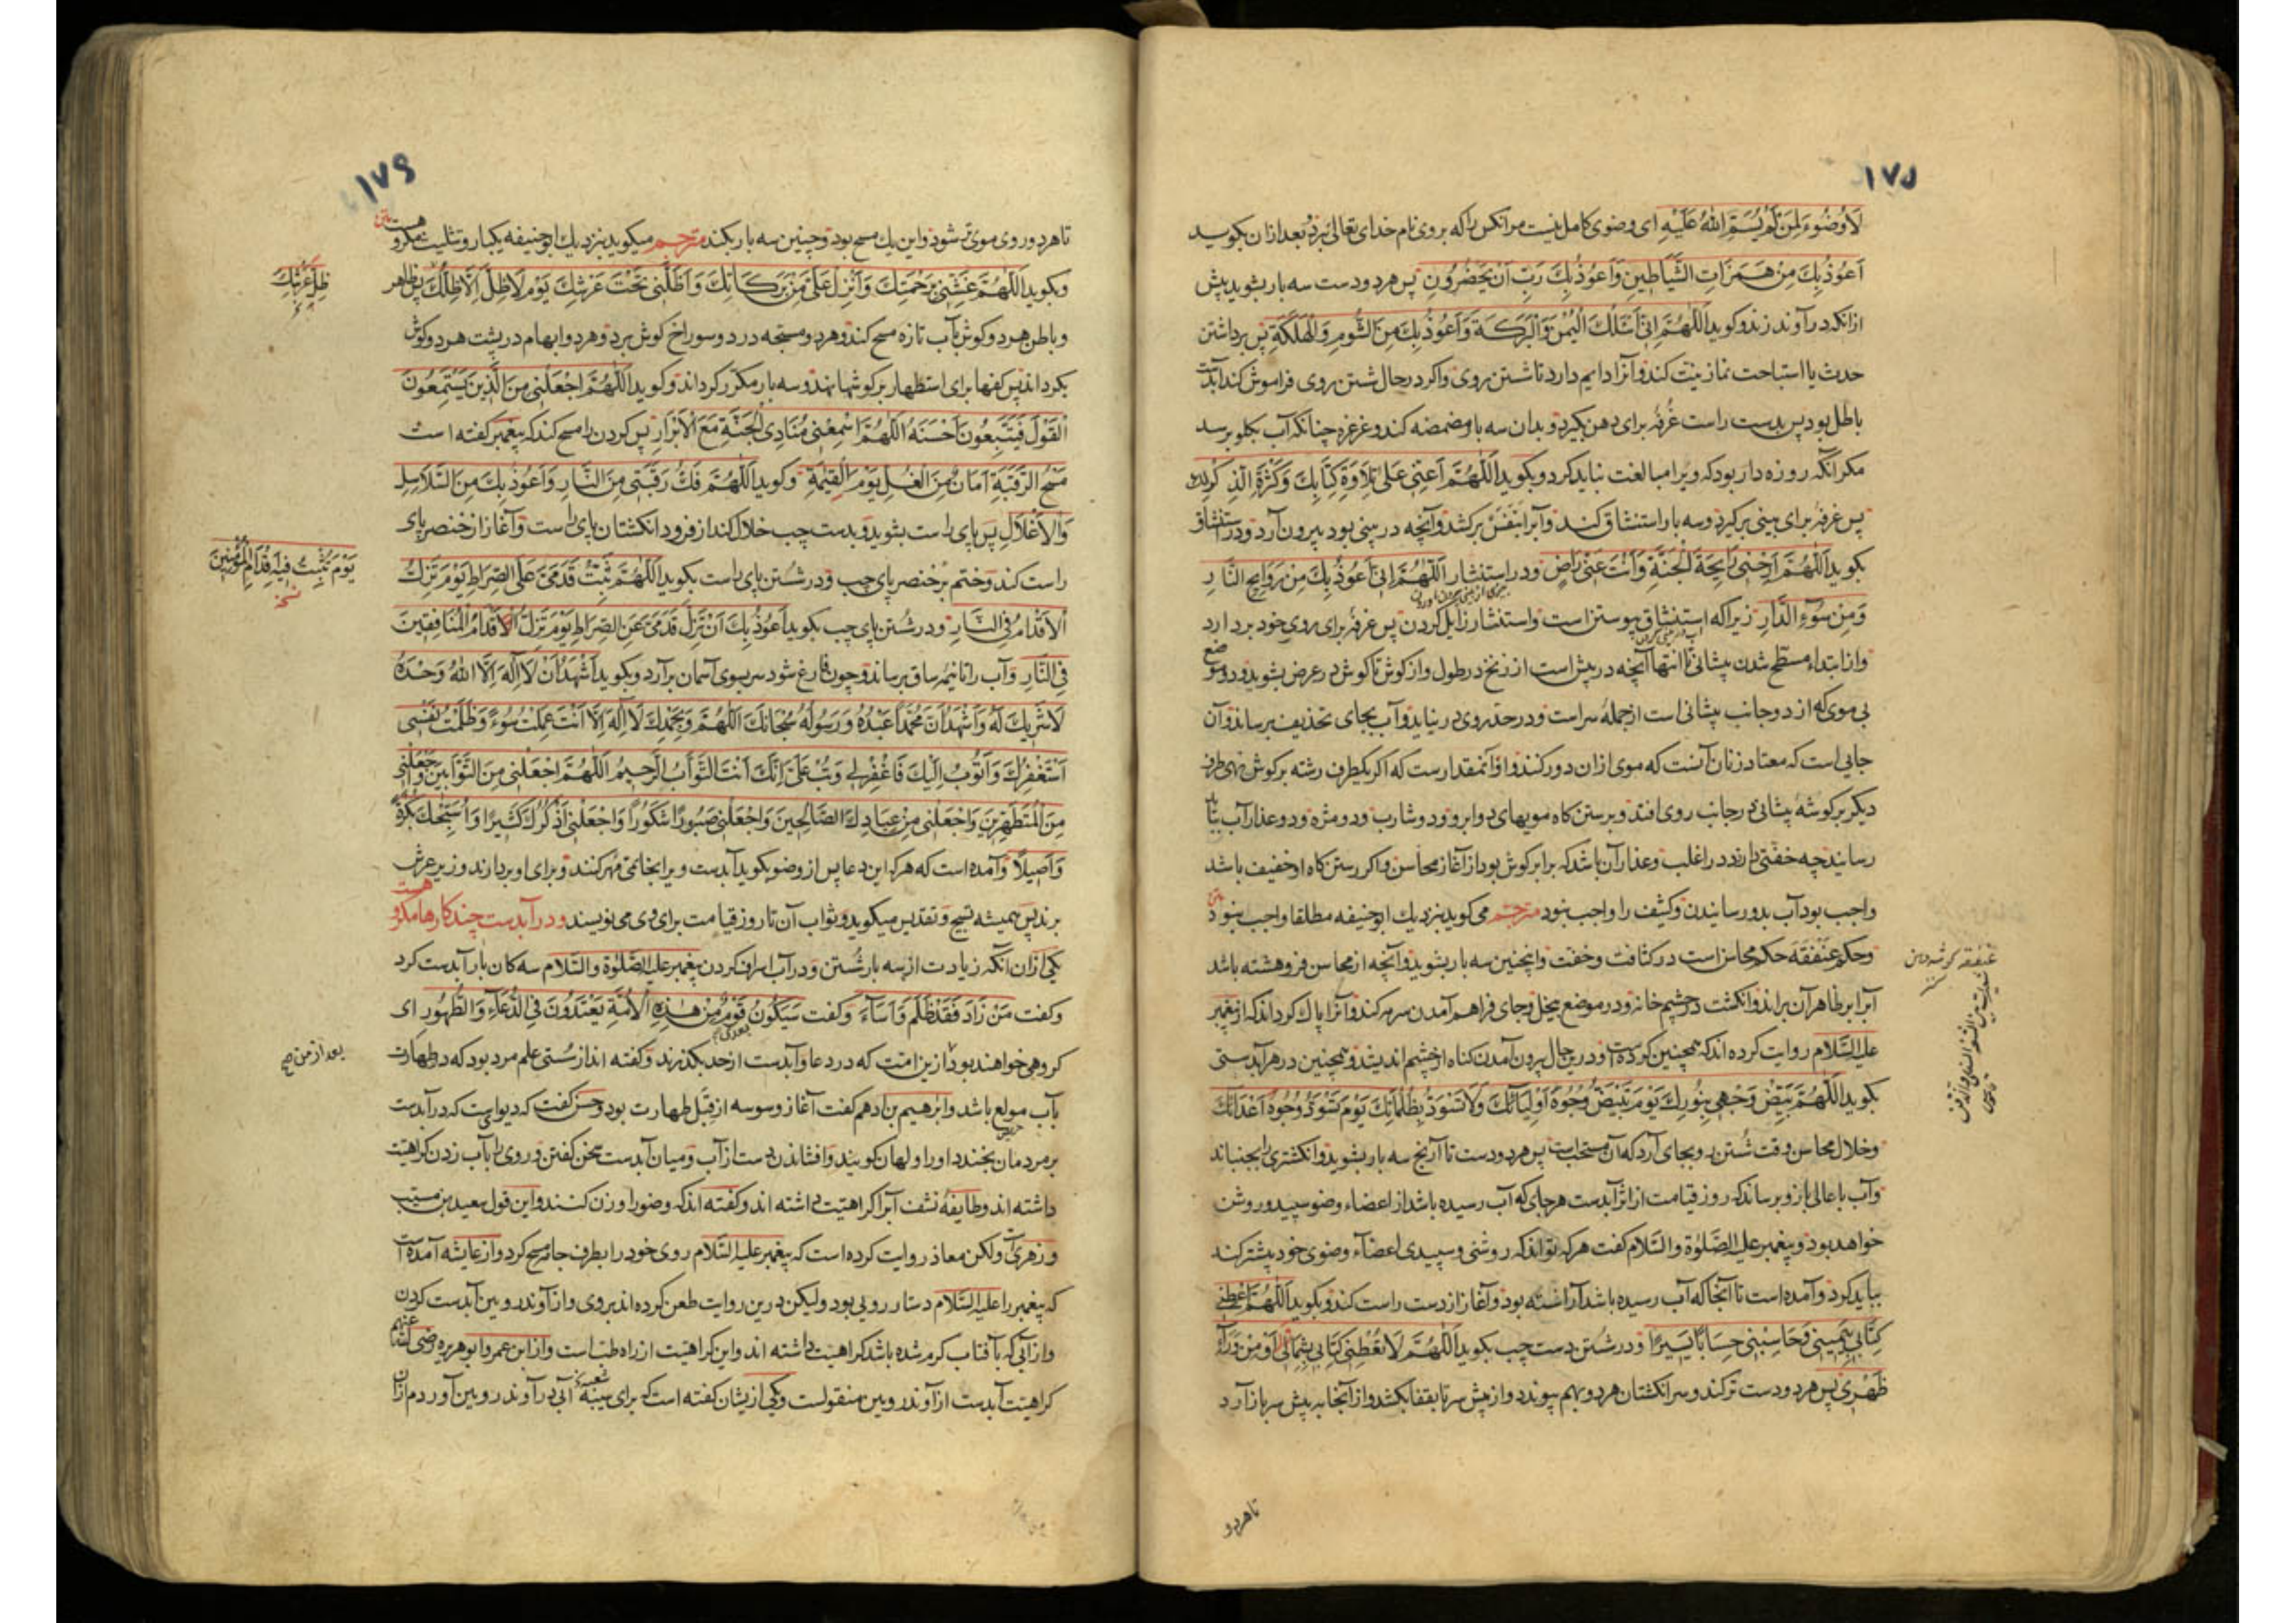 ١٧٥
لَا وُضُوءَ لِمَنْ لَمْ يُسَمِّ اللهَ عَلَيْهِ ای وضوی کامل نیست مر انکس را که بر وی نام خدای تعالی نبرد و بعد ازان بکوید
اَعُوذُ بِكَ مِنْ هَمَزَاتِ الشَّيَاطِينِ وَاَعُوذُ بِكَ رَبِّ اَنْ يَحْضُرُونِ پس هر دو دست سه بار بشوید پیش
ازانکه در آوند زند و کوید اَللّٰهُمَّ اِنِّي اَسْئَلُكَ الْيُمْنَ وَالْبَرَكَةَ وَاَعُوذُ بِكَ مِنَ الشُّومِ وَالْهَلَكَةِ پس برداشتن
حدث یا استباحت نماز نیت کند و آنرا دایم دارد تا شستن روی و اکر در حال شستن روی فراموش کند آبدست
باطل بود پس بدست راست غُرفه برای دهن بکیرد و بدان سه بار مضمضه کند و غرغره چنانکه آب بکلو برسد
مکر آنکه روزه دار بود که ویرا مبالغت نباید کرد و بکوید اَللّٰهُمَّ اَعِنِّي عَلٰی تِلَاوَةِ كِتَابِكَ وَكَثْرَةِ الذِّكْرِ لَكَ
پس غرفه برای بینی برکیرد و سه بار استنشاق کند و آبرا بنفس برکشد و آنچه در بینی بود بیرون آرد و در استنشاق
بکوید اَللّٰهُمَّ اَرِحْنِي رَايِحَةَ الْجَنَّةِ وَاَنْتَ عَنِّي رَاضٍ و در استنثار اَللّٰهُمَّ اِنِّي اَعُوذُ بِكَ مِنْ رَوَايِحِ النَّارِ
وَمِنْ سُوءِ الدَّارِ زیرا که استنشاق پیوستن است و استنثار زایل کردن پس غرفه برای روی خود بردارد
و از ابتداء مسطّح شدن پیشانی تا انتها آنچه در پیش است از زنخ در طول و از کوش تا کوش در عرض بشوید و دو موضع
بی موی که از دو جانب پیشانی است از جملهٔ سر است و در حد روی در نیاید و آب بجای تحذیف برساند و آن
جایی است که معتاد زنان آنست که موی ازان دور کنند و او آنمقدارست که اکر یکطرف رشته بر کوش نهی و طرف
دیکر بر کوشهٔ پیشانی در جانب روی افتد و برستن کاه مویهای دو ابرو و دو شارب و دو مژه و دو عذار آب بباید
رسانید چه خفتی دارند در اغلب و عذار آن باشد که برابر کوش بود از آغاز محاسن و اکر رستن کاه او خفیف باشد
واجب بود آب بدو رسانیدن و کثیف را واجب نبود مترجم می کوید بنزدیك ابو حنیفه مطلقا واجب نبود
و حکم عنفقه حکم محاسن است در کثافت و خفت و اینچنین سه بار بشوید و آنچه از محاسن فروهشته باشد
آبرا بر ظاهر آن براند و انکشت در چشم خانه و در موضع بیخل و جای فراهم آمدن سرمه کند و آنرا پاك کرداند که از پیغمبر
علیه السَّلام روایت کرده اند که همچنین کرده است و درین حال بیرون آمدن کناه از چشم اندیشد و همچنین در هر آبدستی
بکوید اَللّٰهُمَّ بَيِّضْ وَجْهِي بِنُورِكَ يَوْمَ تَبْيَضُّ وُجُوهُ اَوْلِيَائِكَ وَلَا تُسَوِّدْ بِظُلُمَاتِكَ يَوْمَ تَسْوَدُّ وُجُوهُ اَعْدَائِكَ
و خلال محاسن وقت شستن رو بجای آرد که آن مستحب است پس هر دو دست تا آرنج سه بار بشوید و انکشتری را بجنباند
و آب باعالی بازو برساند که روز قیامت از اثر آبدست هر جای که آب رسیده باشد از اعضاء وضو سپید و روشن
خواهد بود و پیغمبر علیه الصَّلوٰة والسَّلام کفت هر که تواند که روشنی و سپیدی اعضاء وضوی خود بیشتر کند
بباید کرد و آمده است تا آنجا که آب رسیده باشد آراسته بود و آغاز از دست راست کند و بکوید اَللّٰهُمَّ اَعْطِنِي
كِتَابِي بِيَمِينِي وَحَاسِبْنِي حِسَابًا يَسِيرًا و در شستن دست چپ بکوید اَللّٰهُمَّ لَا تُعْطِنِي كِتَابِي بِشِمَالِي اَوْ مِنْ وَرَآءِ
ظَهْرِي پس هر دو دست تر کند و سر انکشتان هر دو بهم پیوندد و از پیش سر تا بقفا بکشد و از آنجا به پیش سر باز آرد
تا هر دو
١٧٦
تا هر دو روی موی تر شود و این یك مسح بود و چنین سه بار بکند مترجم میکوید بنزدیك ابو حنیفه یکبار و تثلیث مکروهست
و بکوید اَللّٰهُمَّ غَشِّنِي بِرَحْمَتِكَ وَاَنْزِلْ عَلَيَّ مِنْ بَرَكَاتِكَ وَاَظِلَّنِي تَحْتَ عَرْشِكَ يَوْمَ لَا ظِلَّ اِلَّا ظِلُّكَ پس ظاهر
ظِلُّ عَرْشِكَ
و باطن هر دو کوش بآب تازه مسح کند و هر دو مسبّحه در دو سوراخ کوش برد و هر دو ابهام در پشت هر دو کوش
بکرداند پس کفها برای استظهار بر کوشها نهد و سه بار مکرر کرداند و کوید اَللّٰهُمَّ اجْعَلْنِي مِنَ الَّذِينَ يَسْتَمِعُونَ
الْقَوْلَ فَيَتَّبِعُونَ اَحْسَنَهُ اَللّٰهُمَّ اسْمِعْنِي مُنَادِيَ الْجَنَّةِ مَعَ الْاَبْرَارِ پس کردن را مسح کند که پیغمبر کفته است
مَسْحُ الرَّقَبَةِ اَمَانٌ مِنَ الْغُلِّ يَوْمَ الْقِيٰمَةِ و کوید اَللّٰهُمَّ فُكَّ رَقَبَتِي مِنَ النَّارِ وَاَعُوذُ بِكَ مِنَ السَّلَاسِلِ
وَالْاَغْلَالِ پس پای راست بشوید و بدست چپ خلال کند از فرود انکشتان پای راست و آغاز از خنصر پای
راست کند و ختم بر خنصر پای چپ و در شستن پای راست بکوید اَللّٰهُمَّ ثَبِّتْ قَدَمَيَّ عَلَى الصِّرَاطِ يَوْمَ تَزِلُّ
يَوْمَ تُثَبِّتُ فِيهِ اَقْدَامَ الْمُؤْمِنِينَ
نسخه
الْاَقْدَامُ فِي النَّارِ و در شستن پای چپ بکوید اَعُوذُ بِكَ اَنْ تَزِلَّ قَدَمَيَّ عَنِ الصِّرَاطِ يَوْمَ تَزِلُّ الْاَقْدَامُ الْمُنَافِقِينَ
فِي النَّارِ و آب را تا نیمهٔ ساق برساند و چون فارغ شود سر بسوی آسمان برآرد و بکوید اَشْهَدُ اَنْ لَا اِلٰهَ اِلَّا اللهُ وَحْدَهُ
لَا شَرِيكَ لَهُ وَاَشْهَدُ اَنَّ مُحَمَّدًا عَبْدُهُ وَرَسُولُهُ سُبْحَانَكَ اَللّٰهُمَّ وَبِحَمْدِكَ لَا اِلٰهَ اِلَّا اَنْتَ عَمِلْتُ سُوءً وَظَلَمْتُ نَفْسِي
اَسْتَغْفِرُكَ وَاَتُوبُ اِلَيْكَ فَاغْفِرْ لِي وَتُبْ عَلَيَّ اِنَّكَ اَنْتَ التَّوَّابُ الرَّحِيمُ اَللّٰهُمَّ اجْعَلْنِي مِنَ التَّوَّابِينَ وَاجْعَلْنِي
مِنَ الْمُتَطَهِّرِينَ وَاجْعَلْنِي مِنْ عِبَادِكَ الصَّالِحِينَ وَاجْعَلْنِي صَبُورًا شَكُورًا وَاجْعَلْنِي اَذْكُرُكَ كَثِيرًا وَاُسَبِّحُكَ بُكْرَةً
وَاَصِيلًا و آمده است که هر که این دعا پس از وضو بکوید آبدست ویرا بخاتمی مهر کنند و برای او بردارند و زیر عرش
برند پس همیشه تسبیح و تقدیس میکوید و ثواب آن تا روز قیامت برای وی می نویسند و در آبدست چند کارها مکروهست
یکی ازان آنکه زیادت از سه بار شستن و در آب اسراف کردن پیغمبر علیه الصَّلوٰة والسَّلام سه کان بار آبدست کرد
و کفت مَنْ زَادَ فَقَدْ ظَلَمَ وَاَسَآءَ و کفت سَيَكُونُ قَوْمٌ مِنْ هٰذِهِ الْاُمَّةِ يَعْتَدُونَ فِي الدُّعَآءِ وَالطُّهُورِ ای
کروهی خواهند بود ازین امت که در دعا و آبدست از حد بکذرند و کفته اند از سستی علم مرد بود که در طهارت
بعد از من صح
بآب مولع باشد و ابرهیم بن ادهم کفت آغاز وسوسه از قِبَل طهارت بود و حسن کفت که دیوی است که در آبدست
بر مردمان بخندد او را ولهان کویند و افشاندن دست از آب و میان آبدست سخن کفتن و روی را بآب زدن کراهیت
داشته اند و طایفهٔ نشف آبرا کراهیت داشته اند و کفته اند که وضو را وزن کنند و این قول سعید بن مسیّب
و زهری است ولکن معاذ روایت کرده است که پیغمبر علیه السَّلام روی خود را بطرف جامه مسح کرد و از عایشه آمده است
که پیغمبر را علیه السَّلام دستار رویی بود ولیکن درین روایت طعن کرده اند بر وی و از آوند رویین آبدست کردن
و از آبی که بآفتاب کرم شده باشد کراهیت داشته اند و این کراهیت از راه طب است و از ابن عمر و ابو هریره رضی الله عنهم
کراهیت آبدست از آوند رویین منقولست و یکی ازیشان کفته است که برای شعبه آبی در آوند رویین آوردم ازان